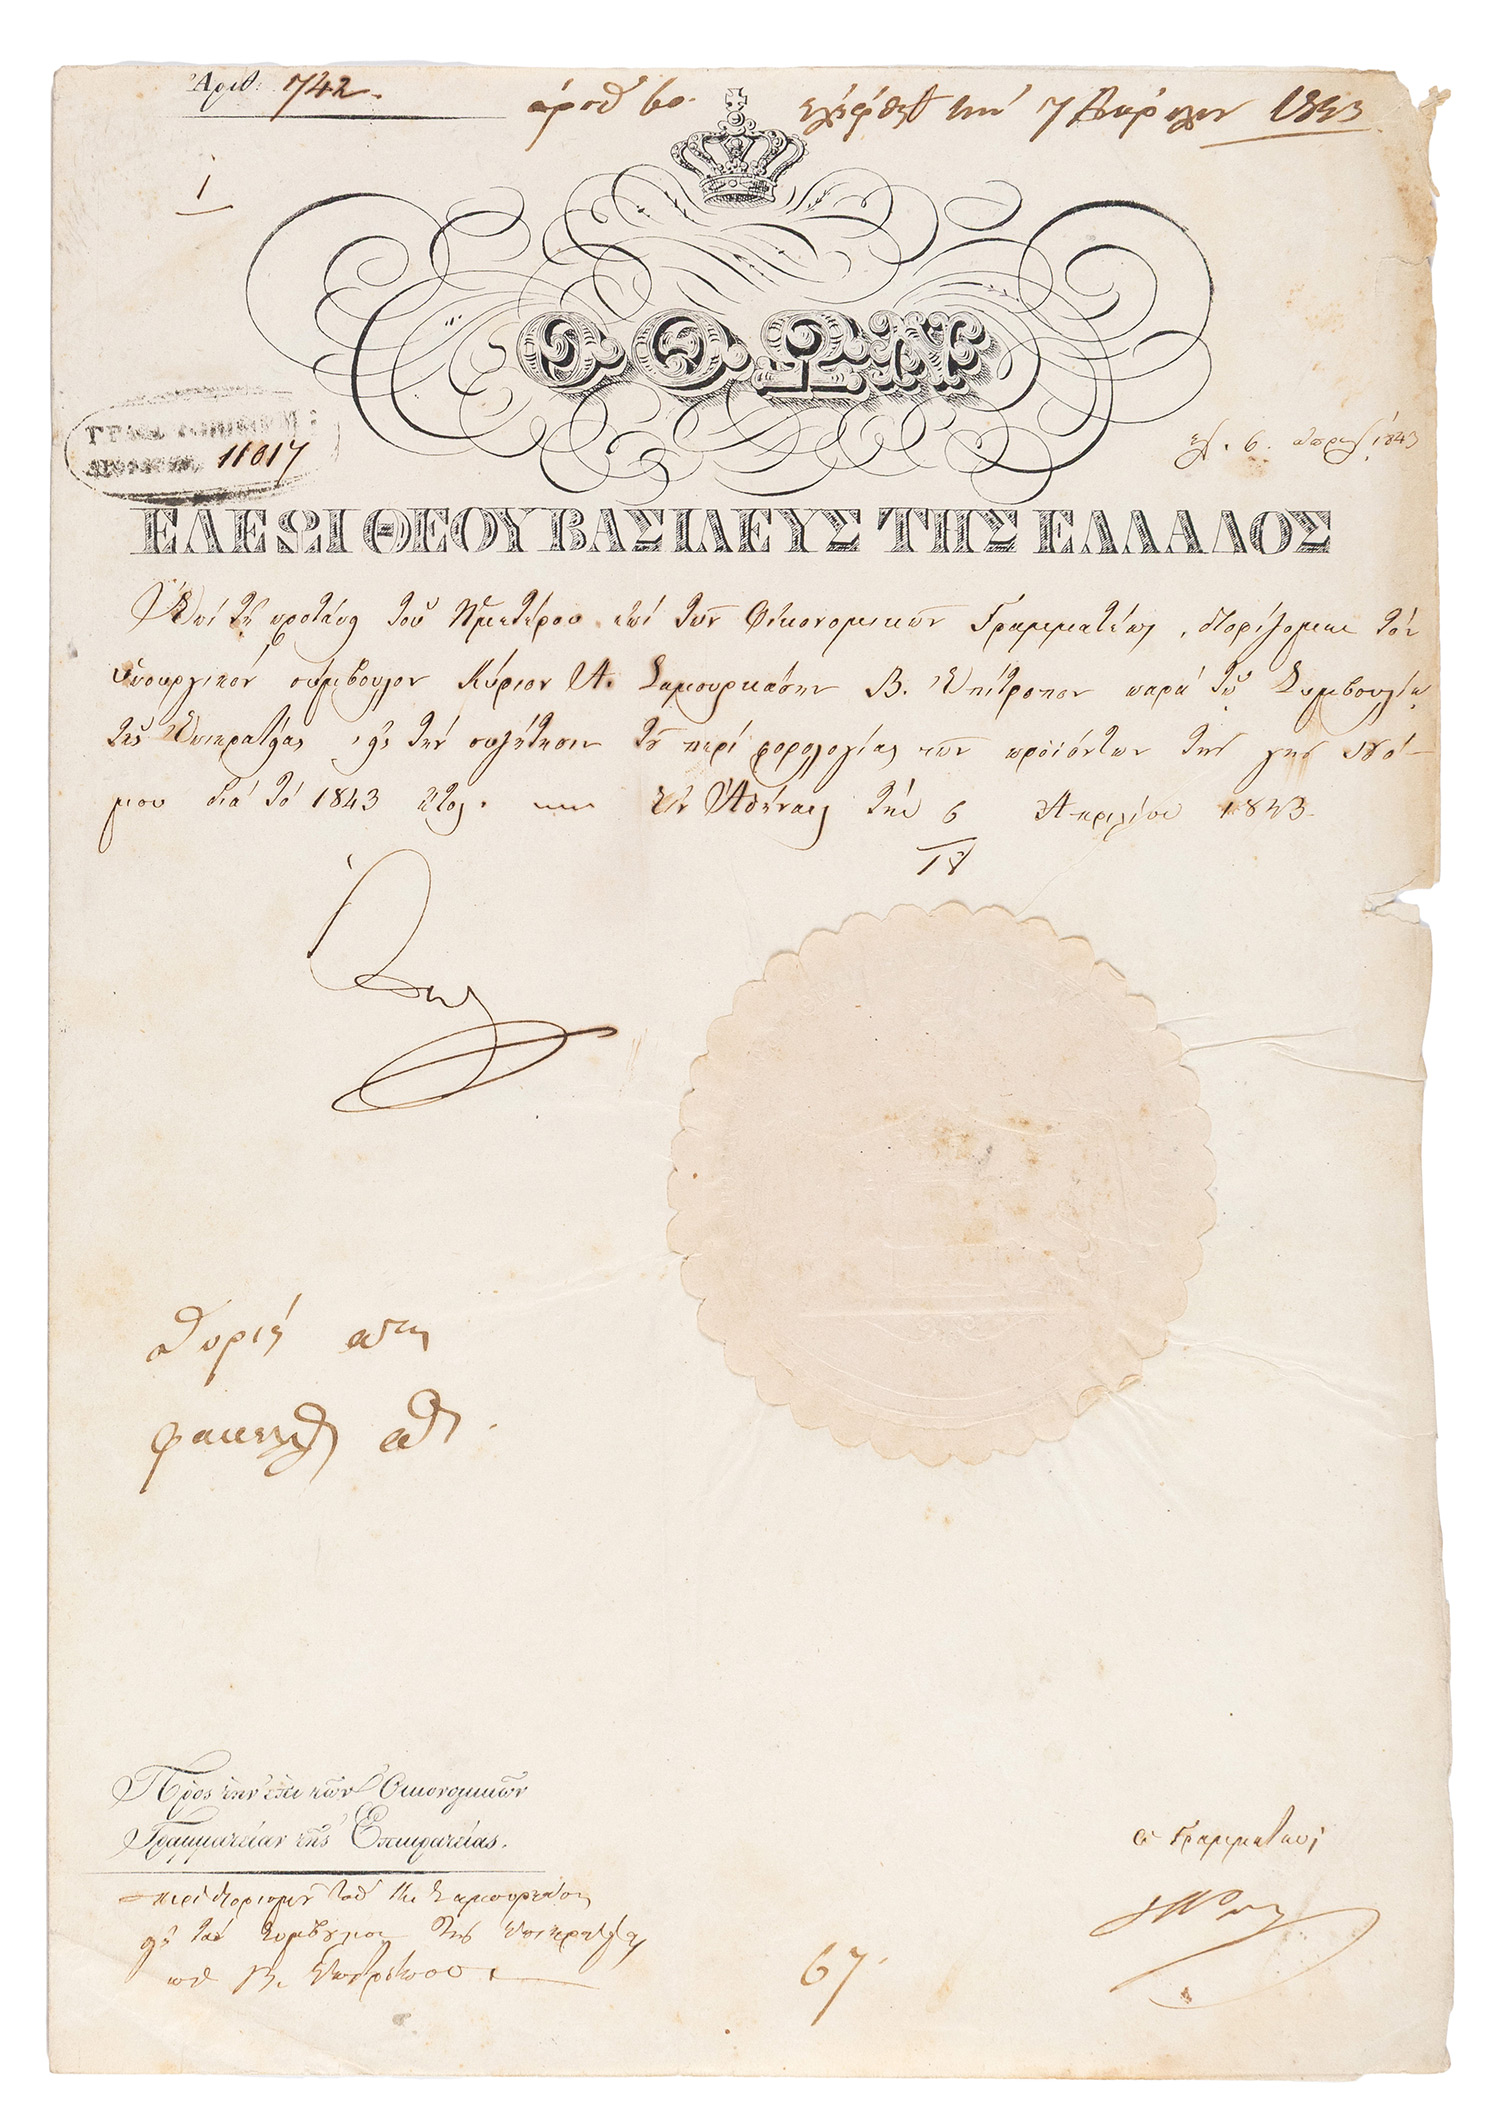 Ἀριθ: 742.
ἐλήφθη τὴν 7 Ἀπριλίου 1843
1
ΟΘΩΝ
11017
6. Ἀπριλ 1843
ΕΛΕΩΙ ΘΕΟΥ ΒΑΣΙΛΕΥΣ ΤΗΣ ΕΛΛΑΔΟΣ
Ἐπὶ τῇ προτάσει τοῦ Ἡμετέρου ἐπὶ τῶν Οἰκονομικῶν Γραμματέως, διορίζομεν τὸν
ὑπουργικὸν σύμβουλον Κύριον Α. Σαμουρκάσην Β. Ἐπίτροπον παρὰ τῷ Συμβουλίῳ
τῆς Ἐπικρατείας, εἰς τὴν συζήτησιν τοῦ περὶ φορολογίας τῶν προϊόντων τῆς γῆς νό-
μου διὰ τὸ 1843 ἔτος. Ἐν Ἀθήναις τὴν 6/18 Ἀπριλίου 1843.
Πρὸς τὴν ἐπὶ τῶν Οἰκονομικῶν
Γραμματείαν τῆς Ἐπικρατείας.
περὶ διορισμοῦ τοῦ Κυ Σαμουρκάση
εἰς τὸ Συμβούλιον τῆς Ἐπικρατείας
Β. Ἐπιτρόπου.
ὁ Γραμματεύς
67.